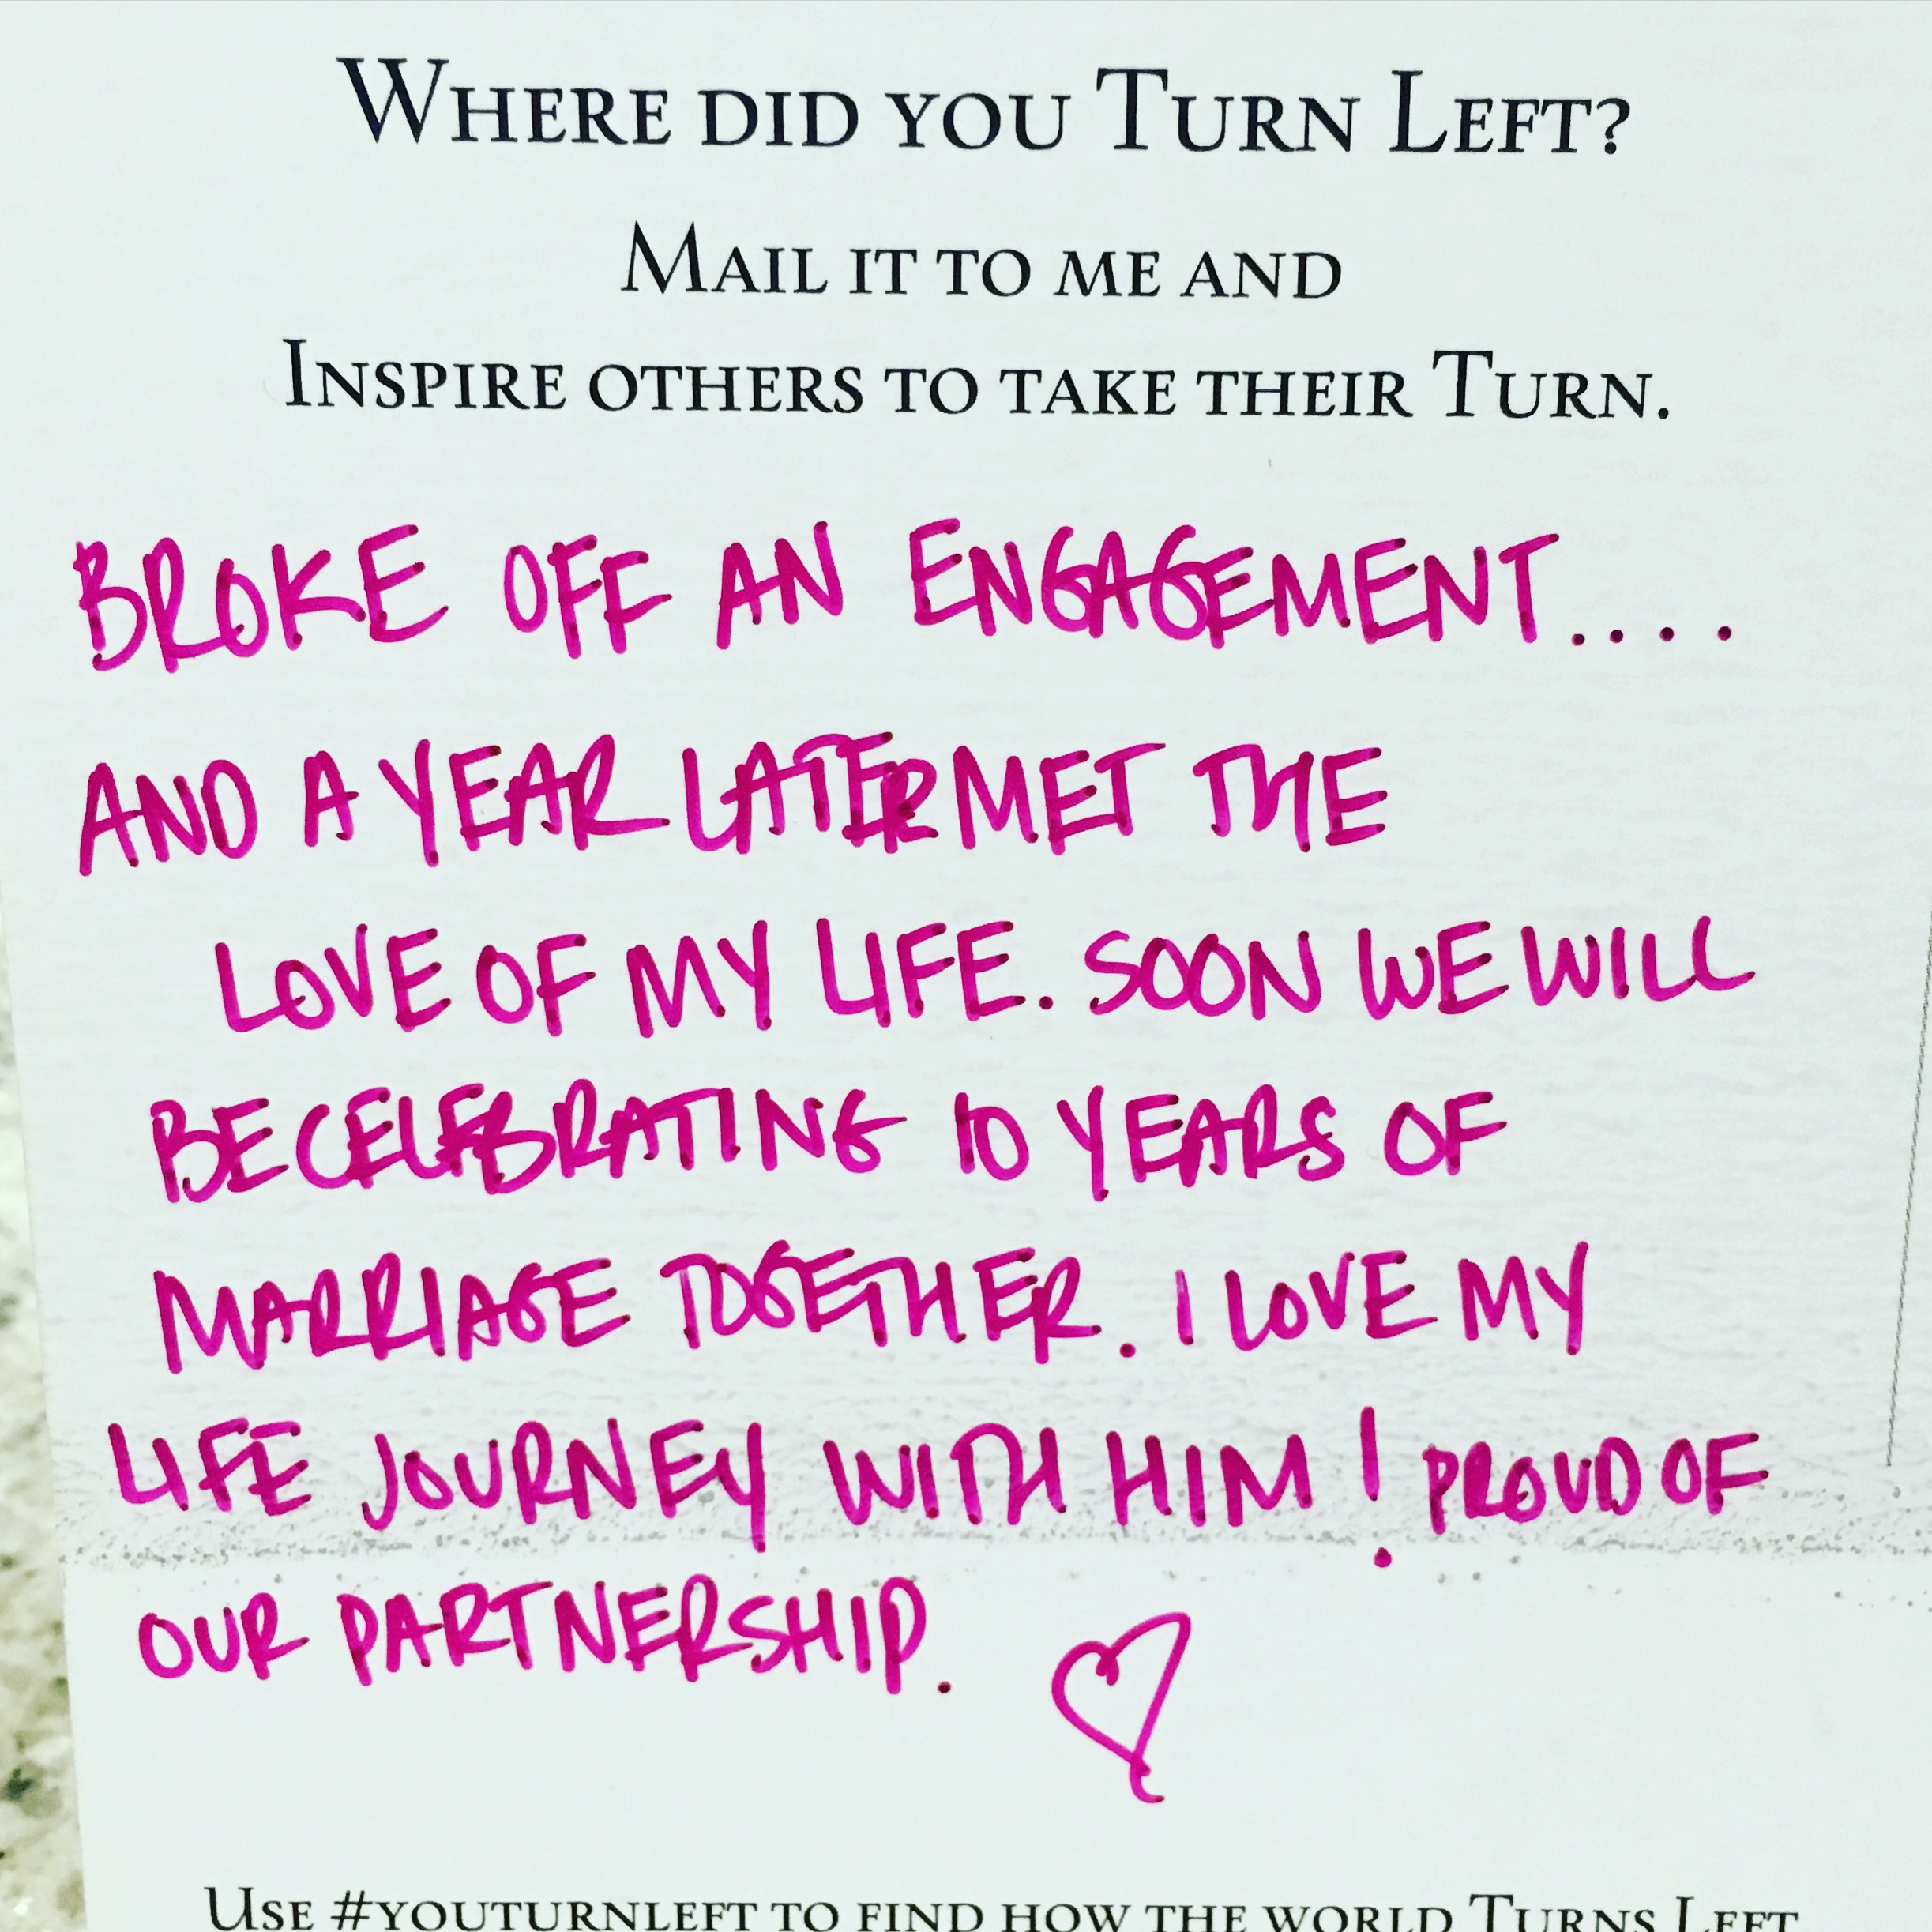 Where did you Turn Left?
Mail it to me and
Inspire others to take their Turn.
BROKE OFF AN ENGAGEMENT....
AND A YEAR LATER MET THE
LOVE OF MY LIFE. SOON WE WILL
BE CELEBRATING 10 YEARS OF
MARRIAGE TOGETHER. I LOVE MY
LIFE JOURNEY WITH HIM! PROUD OF
OUR PARTNERSHIP. ♡
Use #youturnleft to find how the world Turns Left